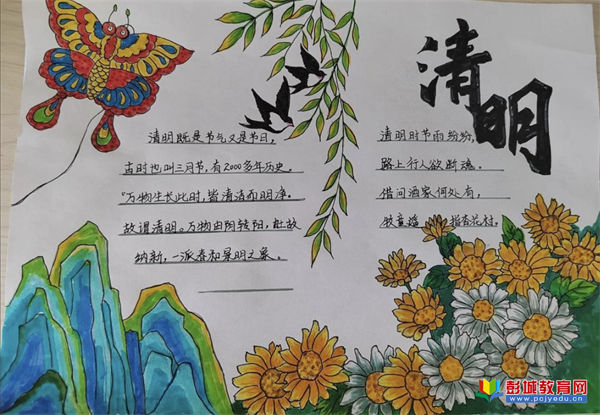 清明
清明既是节气又是节日，
古时也叫三月节，有2000多年历史。
“万物生长此时，皆清洁而明净。
故谓清明。”万物由阴转阳，吐故
纳新，一派春和景明之象。
清明时节雨纷纷，
路上行人欲断魂。
借问酒家何处有，
牧童遥指杏花村。
彭城教育网
www.pcjyedu.cn